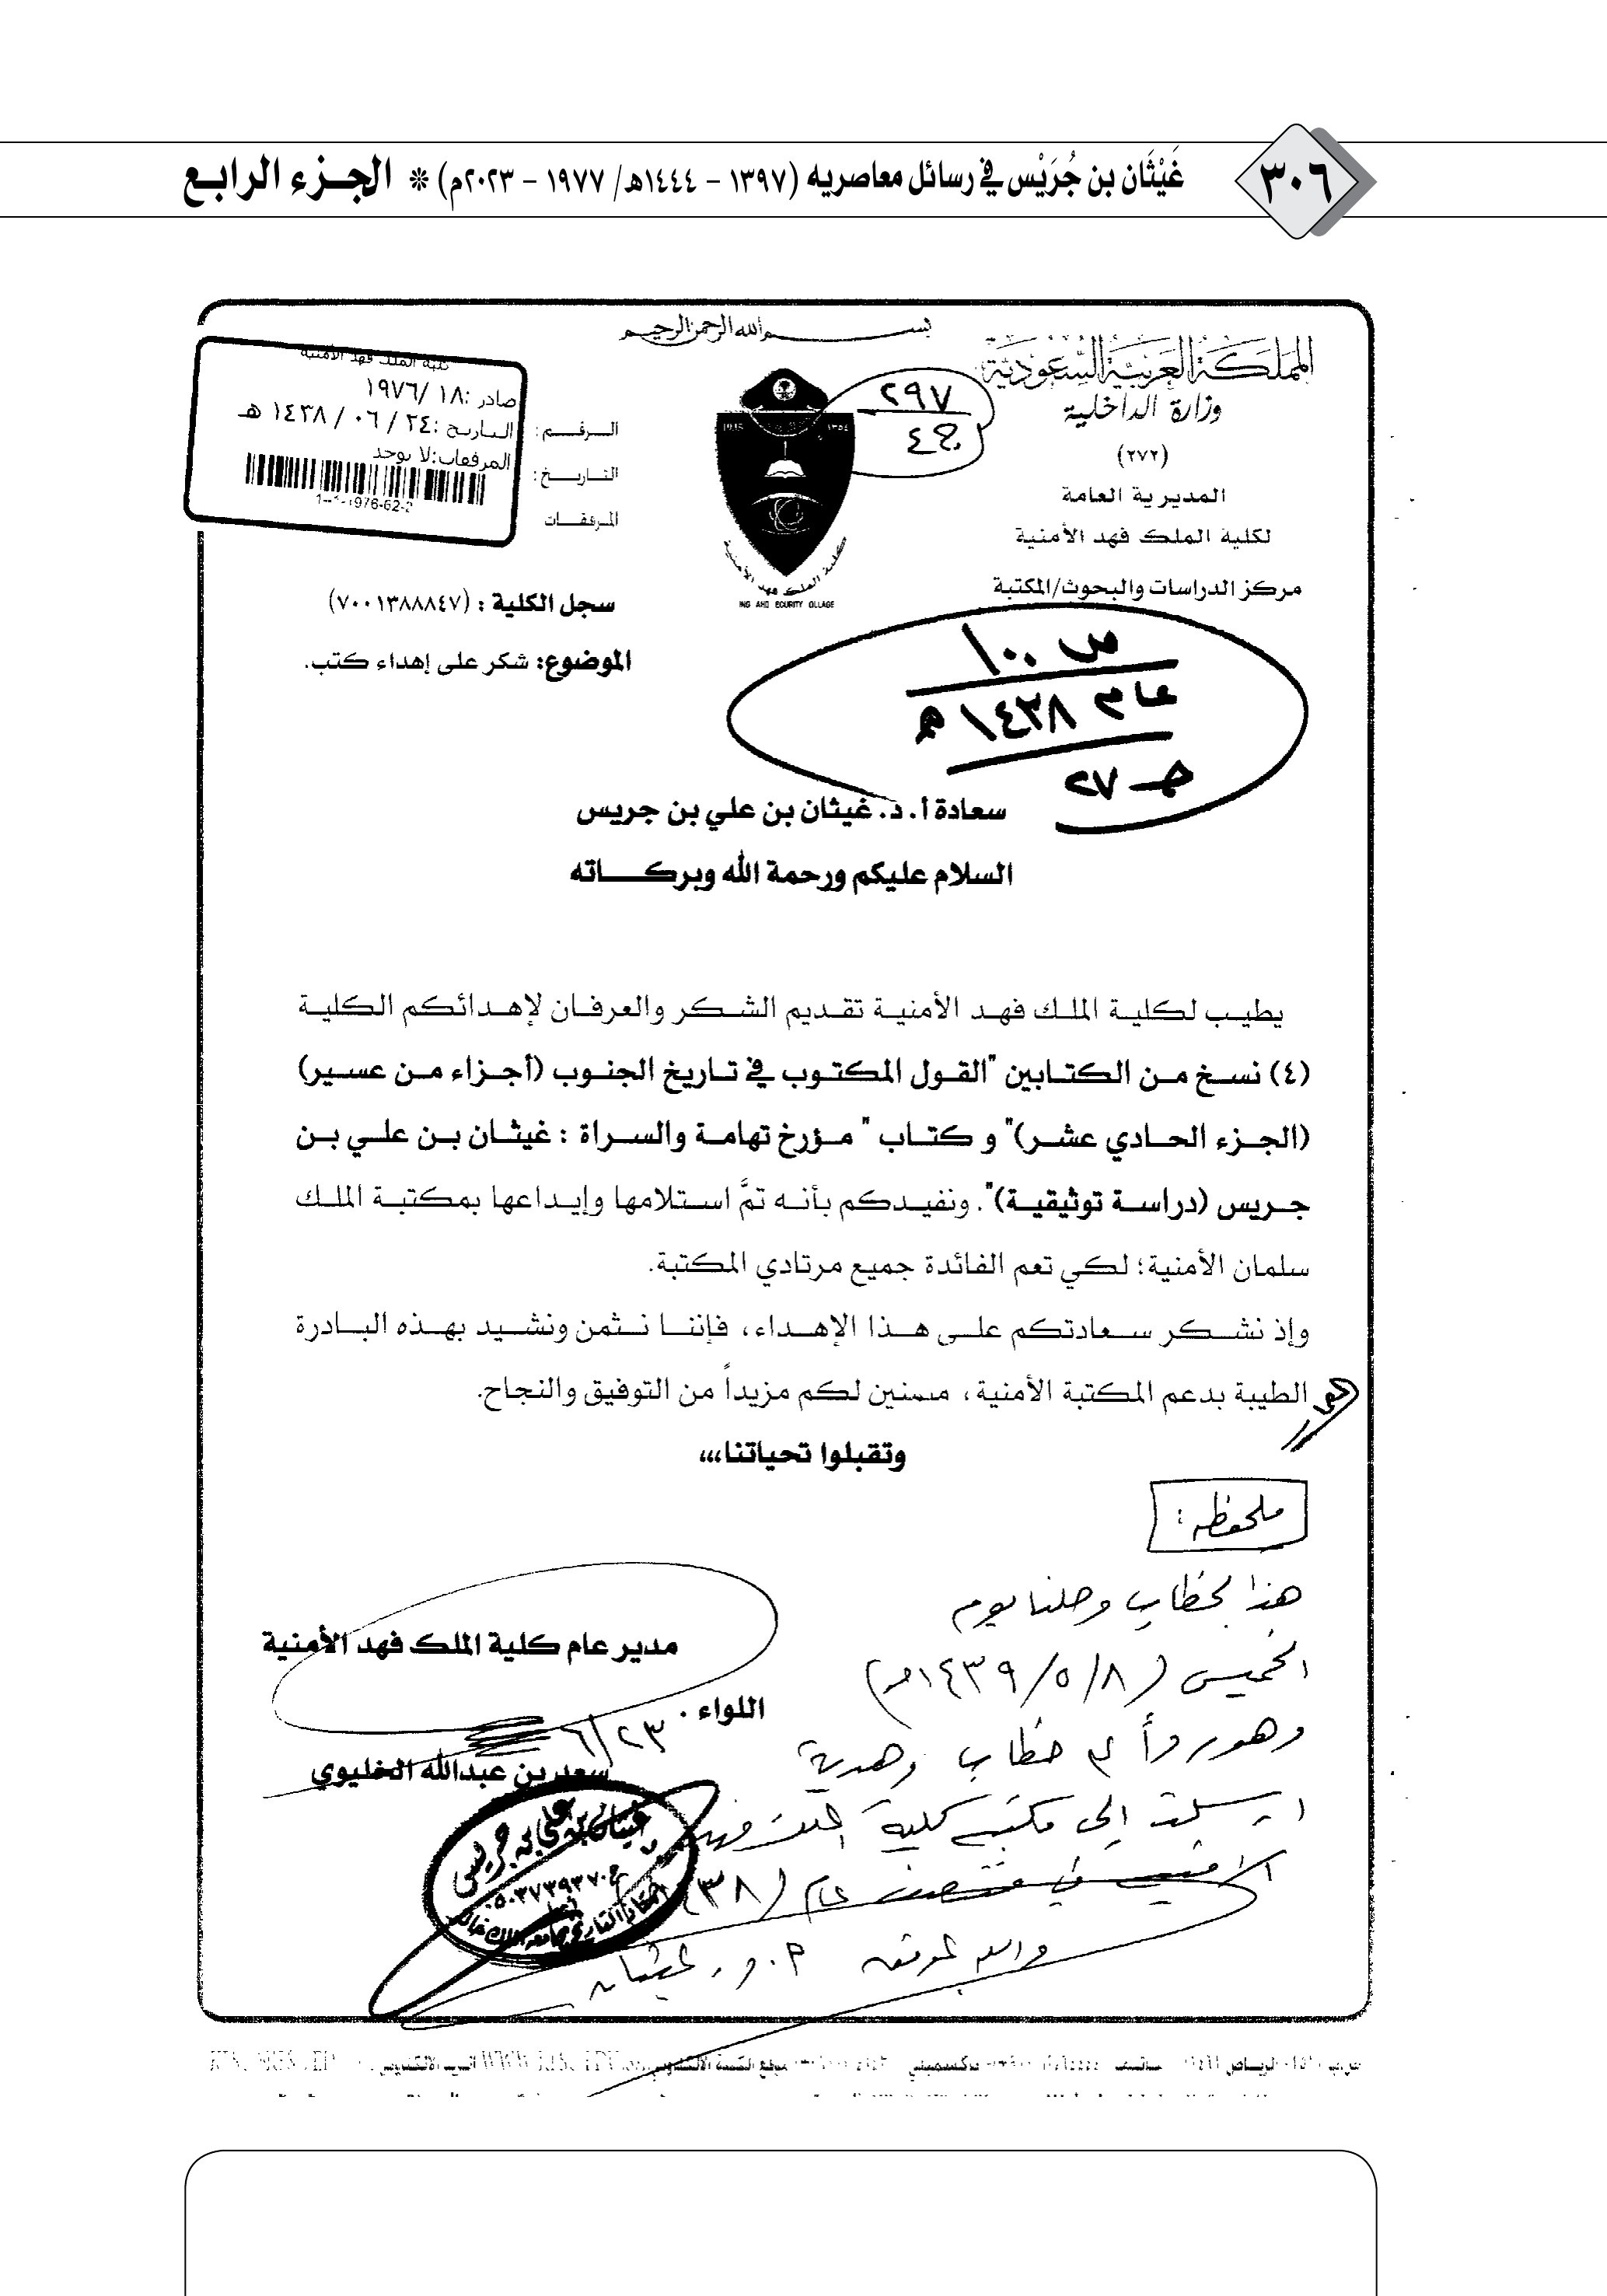 ٣٠٦
غَيْثَان بن جُرَيْس في رسائل معاصريه (١٣٩٧ - ١٤٤٤هـ/ ١٩٧٧ - ٢٠٢٣م) * الجزء الرابع
بسم الله الرحمن الرحيم
المملكة العربية السعودية
وزارة الداخلية
(٢٧٢)
المديرية العامة
لكلية الملك فهد الأمنية
مركز الدراسات والبحوث/المكتبة
٢٩٧
ج ٤
كلية الملك فهد الأمنية
كلية الملك فهد الأمنية
صادر :١٨ /١٩٧٦
التاريخ :٢٤ / ٠٦ / ١٤٣٨ هـ
المرفقات:لا يوجد
الرقم :
التاريخ :
المرفقات
سجل الكلية : (٧٠٠١٣٨٨٨٤٧)
الموضوع: شكر على إهداء كتب.
س ١٠٠
عام ١٤٣٨ هـ
جـ ٢٧
سعادة أ. د. غيثان بن علي بن جريس
السلام عليكم ورحمة الله وبركاته
يطيب لكلية الملك فهد الأمنية تقديم الشكر والعرفان لإهدائكم الكلية
(٤) نسخ من الكتابين "القول المكتوب في تاريخ الجنوب (أجزاء من عسير)
(الجزء الحادي عشر)" و كتاب " مؤرخ تهامة والسراة : غيثان بن علي بن
جريس (دراسة توثيقية)". ونفيدكم بأنه تمَّ استلامها وإيداعها بمكتبة الملك
سلمان الأمنية؛ لكي تعم الفائدة جميع مرتادي المكتبة.
وإذ نشكر سعادتكم على هذا الإهداء، فإننا نثمن ونشيد بهذه البادرة
الطيبة بدعم المكتبة الأمنية، متمنين لكم مزيداً من التوفيق والنجاح.
وتقبلوا تحياتنا،،،
مدير عام كلية الملك فهد الأمنية
اللواء .
٦/٢٣
سعد بن عبدالله الخليوي
ملحوظة :
هذا الخطاب وصلنا يوم
الخميس (١٤٣٩/٥/٨هـ)
وهو رداً خطاب وهدية
ارسلت إلى مكتبة كلية الملك فهد
الأمنية في منتصف عام (٣٨)
والله الموفق أ. د. غيثان
غيثان بن علي بن جريس